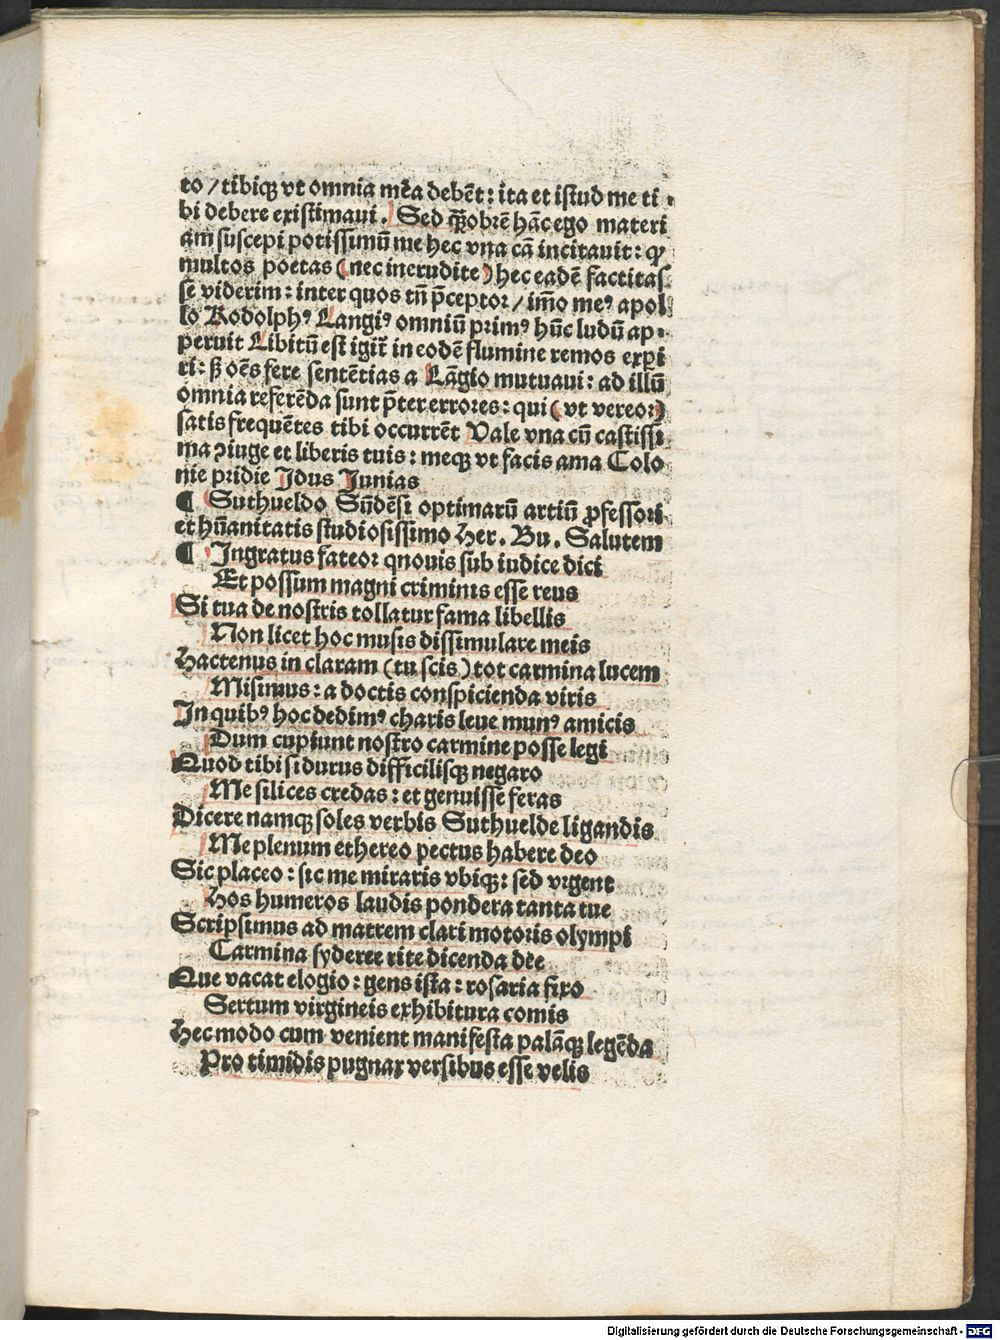 to / tibiqȝ vt omnia mēa debēt : ita et istud me ti-
bi debere existimaui . Sed q̄obrē hāc ego materi
am suscepi potissimū me hec vna cā incitauit : qꝫ
multos poetas ( nec inerudite ) hec eadē factitas
se viderim : inter quos tn̄ p̄ceptor / im̄o meꝰ apol
lo Rodolphꝰ Langiꝰ omniū primꝰ hūc ludū ap-
peruit Libitū est igit̄ in eodē flumine remos exꝑi
ri : ꝫ oēs fere sentētias a Lāgio mutuaui : ad illū
omnia referēda sunt p̄ter errores : qui ( vt vereor )
satis frequētes tibi occurrēt Vale vna cū castissi
ma ꝯiuge et liberis tuis : meqȝ vt facis ama Colo
nie pridie Idus Junias
¶ Suthueldo Sūdēsi optimarū artiū ꝓfessori
et hūanitatis studiosissimo Her . Bu . Salutem
¶ Ingratus fateor qnouis sub iudice dici
Et possum magni criminis esse reus
Si tua de nostris tollatur fama libellis
Non licet hoc musis dissimulare meis
Hactenus in claram ( tu scis ) tot carmina lucem
Misimus : a doctis conspicienda viris
In quibꝰ hoc dedimꝰ charis leue munꝰ amicis
Dum cupiunt nostro carmine posse legi
Quod tibi si durus difficilisqȝ negaro
Me silices credas : et genuisse feras
Dicere namqȝ soles verbis Suthuelde ligandis
Me plenum ethereo pectus habere deo
Sic placeo : sic me miraris vbiqȝ : sed vrgent
Hos humeros laudis pondera tanta tue
Scripsimus ad matrem clari motoris olympi
Carmina syderee rite dicenda dee
Que vacat elogio : gens ista : rosaria fixo
Sertum virgineis exhibitura comis
Hec modo cum venient manifesta palāqȝ legēda
Pro timidis pugnax versibus esse velis
Digitalisierung gefördert durch die Deutsche Forschungsgemeinschaft - DFG